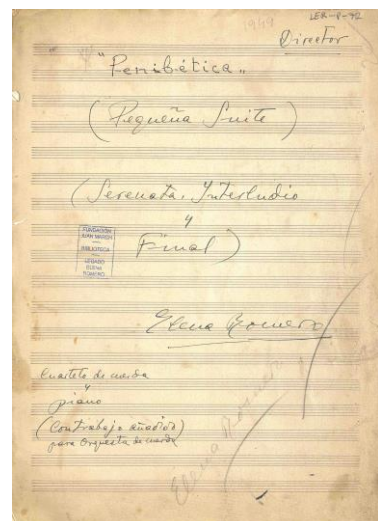 LER-P-92
1948
Director
"Penibética"
(Pequeña Suite)
(Serenata, Interludio
y
Final)
FUNDACIÓN
JUAN MARCH
BIBLIOTECA
LEGADO
ELENA
ROMERO
Elena Romero
Cuarteto de cuerda
y
piano
(Contrabajo añadido)
para Orquesta de cuerda
Elena Romero